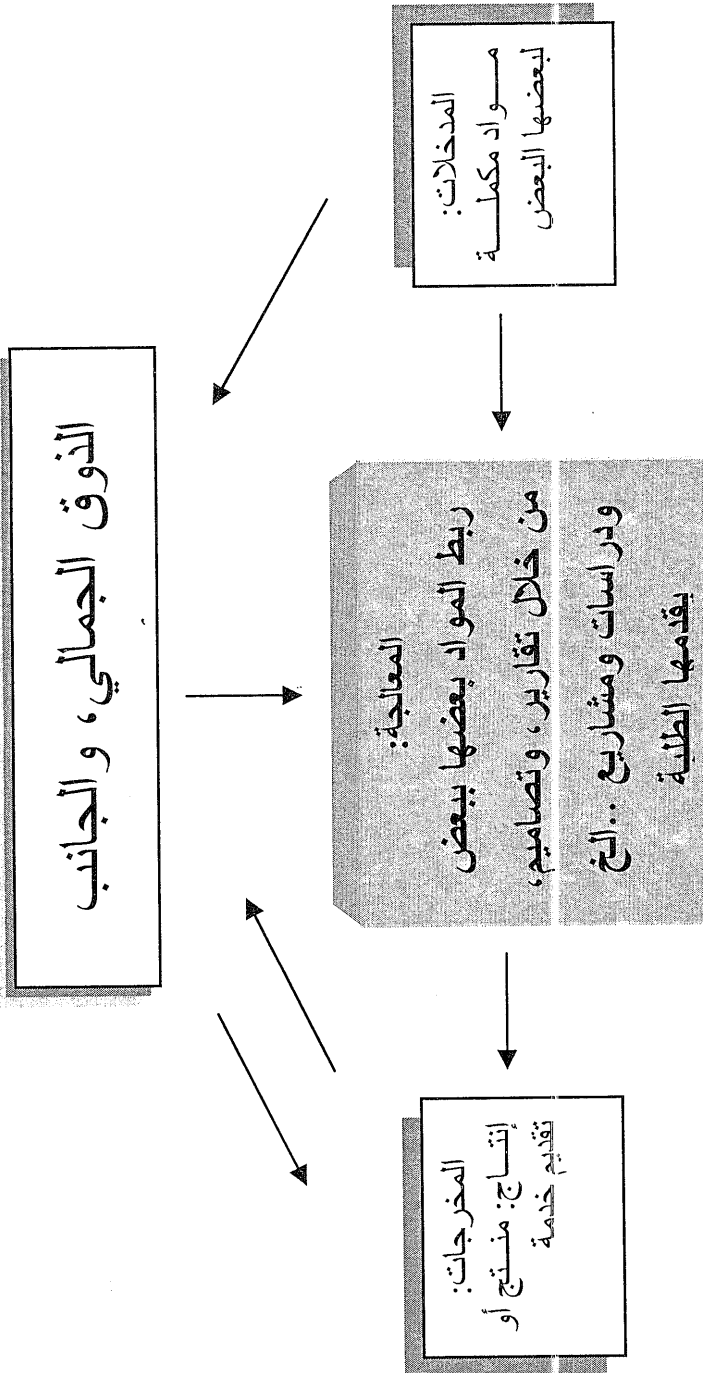 الذوق الجمالي، والجانب
المدخلات:
مواد مكملة
لبعضها البعض
المعالجة:
ربط المواد بعضها ببعض
من خلال تقارير، وتصاميم،
ودراسات ومشاريع ..الخ
يقدمها الطلبة
المخرجات:
إنتاج: منتج أو
تقديم خدمة